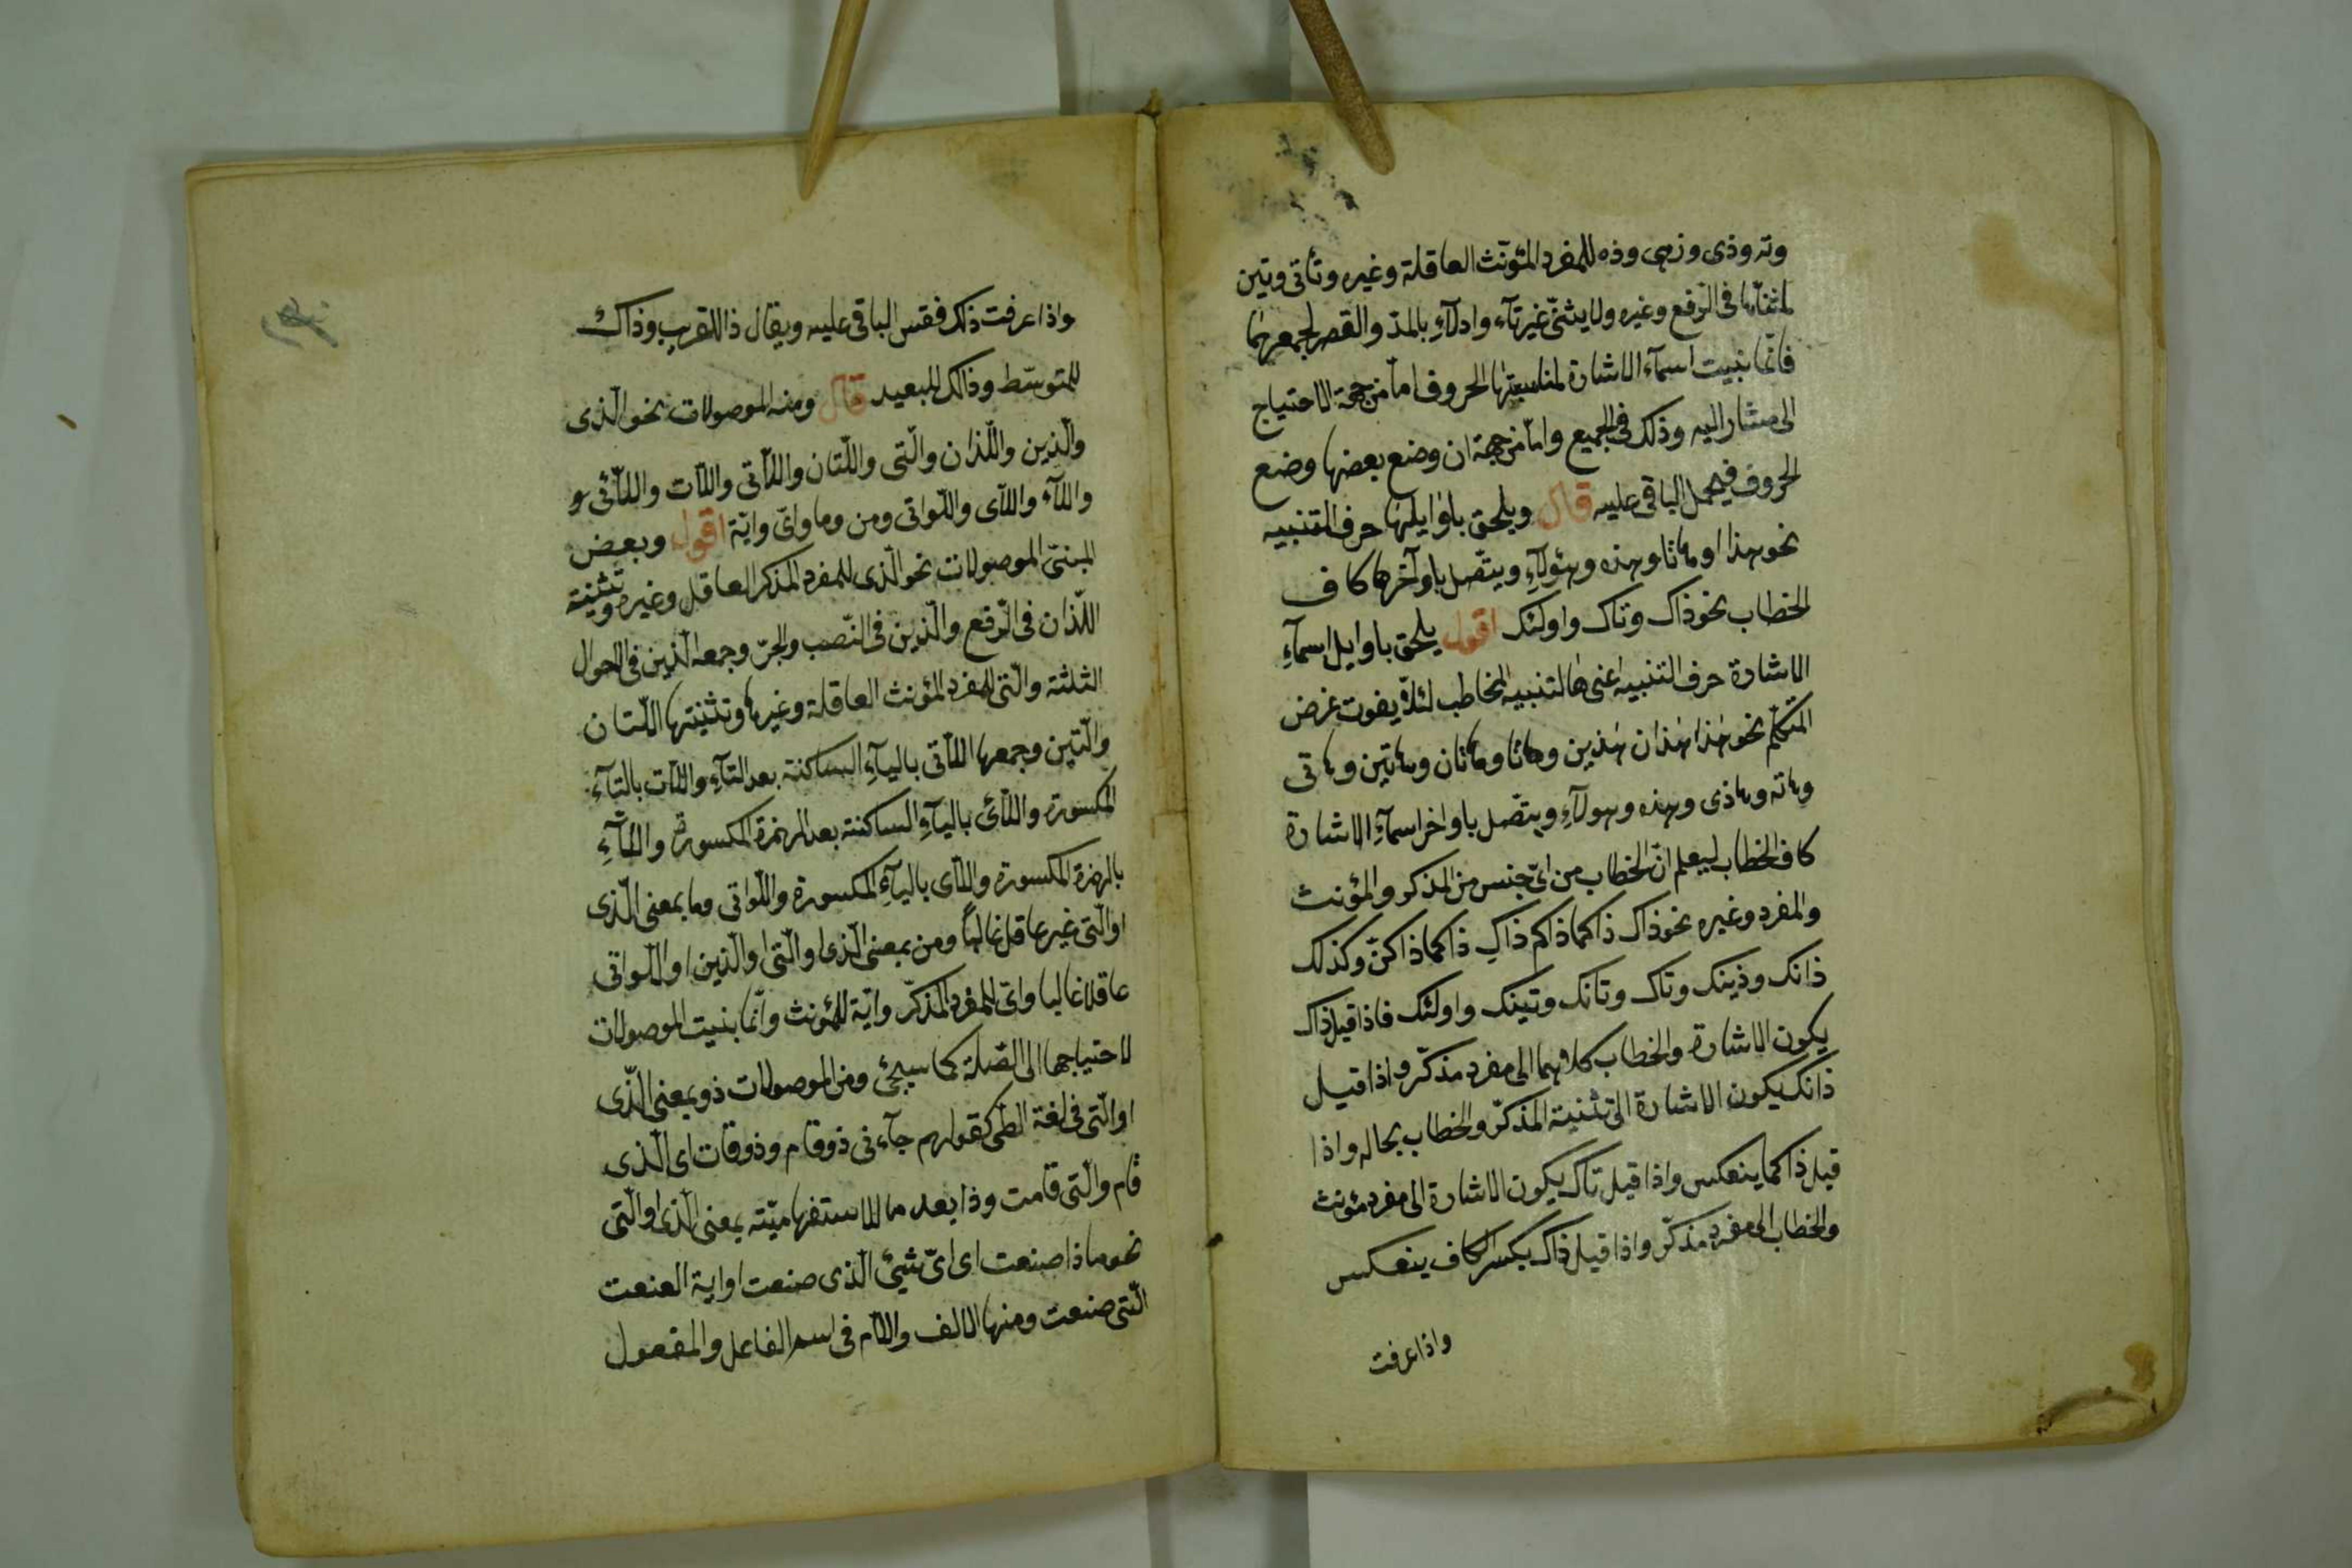 وته وذى وذهى وذه للمفرد المؤنّث العاقلة وغيره وتاتى وتين
لمثناها فى الرّفع وغيره ولا يثنّى غيرتاء واولآءِ بالمدّ والقصر لجمعهما
فانّما بنيت اسمآء الاشارة لمناسبتها الحروف امّا من جهة الاحتياج
الى مشار اليه وذلك فى الجميع وامّا من جهة ان وضع بعضها وضع
الحروف فيحمل الباقى عليه قال ويلحق باوايلها حرف التنبيه
نحو هذا وهاتا وهذه وهؤلآءِ ويتّصل باوآخرها كاف
الخطاب نحو ذاك وتاك واولئك اقول يلحق باوايل اسمآءِ
الاشارة حرف التنبيه اعنى ها لتنبيه المخاطب لئلّا يفوت غرض
المتكلّم نحو هذا هذان هذين وهاتا وهاتان وهاتين وهاتى
وهاته وهاذى وهذه وهولآءِ ويتّصل باواخر اسمآءِ الاشارة
كاف الخطاب ليعلم انّ الخطاب من اىّ جنس من المذكر والمؤنث
والمفرد وغيره نحو ذاك ذاكما ذاكم ذاكِ ذاكما ذاكنّ وكذلك
ذانك وذينك وتاك وتانك وتينك واولئك فاذا قيل ذاك
يكون الاشارة والخطاب كلاهما الى مفرد مذكّر واذا قيل
ذانك يكون الاشارة الى تثنية المذكّر والخطاب بحاله واذا
قيل ذاكما ينعكس واذا قيل تاك يكون الاشارة الى مفرد مؤنث
والخطاب الى مفرد مذكّر واذا قيل ذاك بكسر الكاف ينعكس
واذا عرفت
واذا عرفت ذلك فقس الباقى عليه ويقال ذا للقريب وذاك
للمتوسّط وذالك للبعيد قال ومنه الموصولات نحو الّذى
والّذين واللّذان والّتى واللّتان واللّاتى واللّات واللّائى و
واللّاء واللّاى واللّواتى ومن وما واىّ وايّة اقول وبعض
المبنىّ الموصولات نحو الّذى للمفرد المذكر العاقل وغيره وتثنيته
اللّذان فى الرّفع والّذين فى النّصب والجرّ وجمعه الّذين فى الاحوال
الثلثة والّتى للمفرد المؤنث العاقلة وغيرها وتثنيتها اللّتان
والّتين وجمعها اللّاتى باليآءِ الساكنة بعد التآءِ واللّات بالتآءِ
المكسورة واللّائى باليآءِ الساكنة بعد الهمزة المكسورة واللّاءِ
بالهمزة المكسورة واللّاى باليآءِ المكسورة واللّواتى وما بمعنى الّذى
او الّتى غير عاقل غالباً ومن بمعنى الّذى او الّتى او الّذين او اللّواتى
عاقلا غالبا واىّ للمفرد المذكّر وايّة للمؤنث وانّما بنيت الموصولات
لاحتياجها الى الصّلة كما سيجئ ومن الموصولات ذو بمعنى الّذى
او الّتى فى لغة الطّى كقولهم جآءنى ذو قام وذو قامت اى الّذى
قام والّتى قامت وذا بعد ما للاستفهاميّة بمعنى الّذى او الّتى
نحو ماذا صنعت اى اىّ شيئ الّذى صنعت او اية الصنعت
الّتى صنعت ومنها الالف واللّام فى اسم الفاعل والمفعول